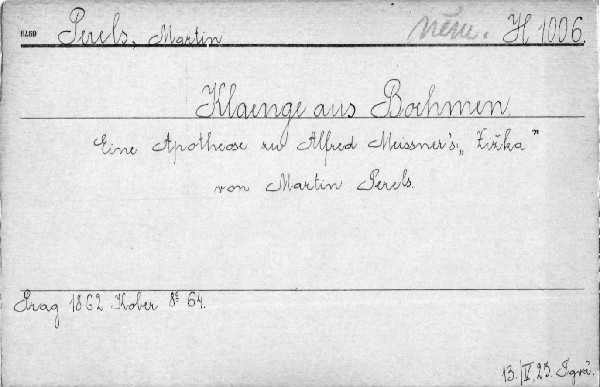 6769 Perels, Martin něm. H 1006.
Klaenge aus Boehmen.
Eine Apotheose zu Alfred Meissner's „Žižka"
von Martin Perels.
Prag 1862. Kober 8° 64.
13./IV. 23.